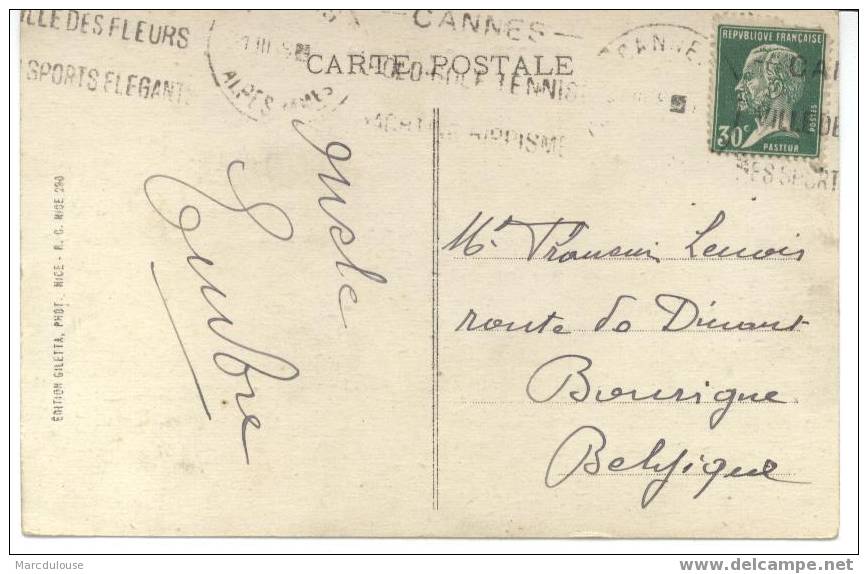 CANNES
VILLE DES FLEURS
SPORTS ELEGANTS
ALPES MMES
CARTE POSTALE
POLO GOLF TENNIS
YACHTING HIPPISME
CANNES
REPUBLIQUE FRANÇAISE
POSTES
30c
PASTEUR
CAN
VILLE DE
DES SPORT
ÉDITION GILETTA, PHOT. NICE - R. C. NICE 290
Mr Lenoir
route de Dinant
Bouvigne
Belgique
Marcdulouse
delcampe.net